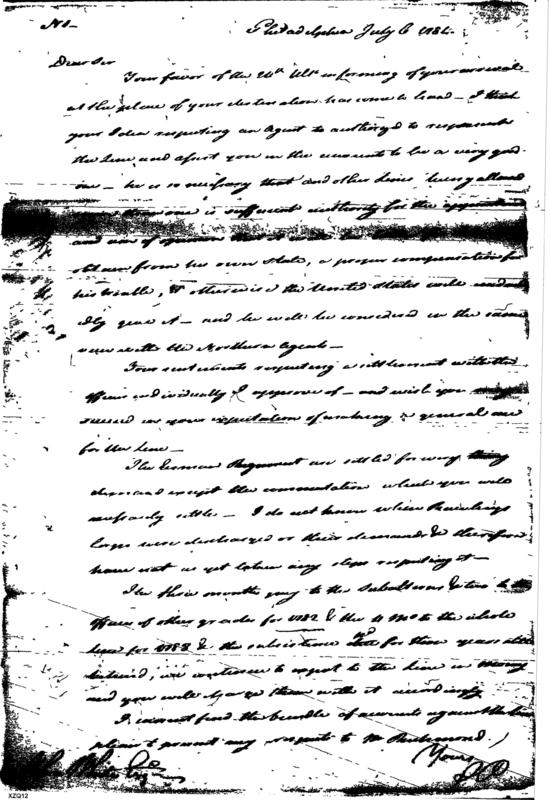 No
Philadelphia July 6 1784.
Dear Sir
Your favor of the Ult informing of your arrival
at the place of your destination has come to hand – I think
your Idea respecting an Agent to authorized to represent
the Line, and assist you in the accounts to be a very good
one – he is so necessary that and other Lines being allowed
one is sufficient authority for the
and am of opinion that it
obtain from his own State, a proper compensation for
his trouble, & otherwise the United States will
give it – and he will be considered in the same
view with the Northern Agents –
Your sentiments respecting a settlement with the
officers individually I approve of – and wish you may
succeed in your expectation of making a general one
for the Line –
The German Regiment are settled for every thing
demand except the commutation which you will
necessarily settle – I do not know when
Corps were discharged or their demands & therefore
have not as yet taken any steps respecting it –
The three months pay to the Subalterns & two to the
officers of other grades for 1782 & the 4 Mo to the whole
line for 1783 & the subsistence for those years
we continue to
and you will charge them with it accordingly
I cannot find the bundle of accounts against the
please to present my respects to Mr Richmond
Yours
JP
White Esqr
XZQ12